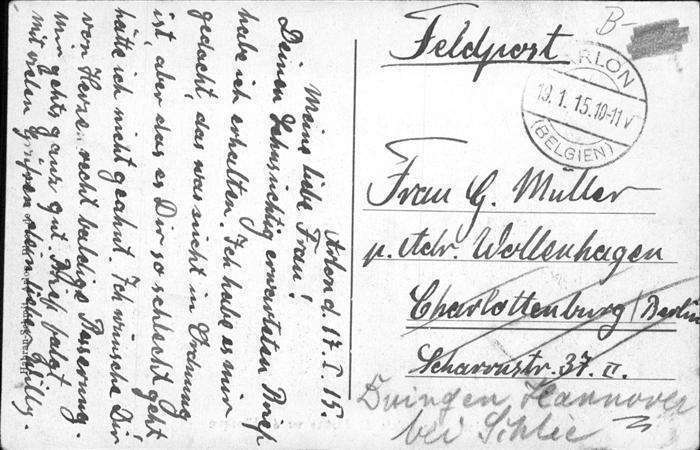 Arlon d. 17. I. 15.
Meine liebe Frau!
Deinen sehnsüchtig erwarteten Brief
habe ich erhalten. Ich habe es mir
gedacht, das was nicht in Ordnung
ist, aber das es Dir so schlecht geht
hätte ich nicht geahnt. Ich wünsche Dir
von Herzen recht baldige Besserung.
Mir gehts ganz gut. Brief folgt
Mit vielen Grüssen dein lieber Willy.
Feldpost
B-
ARLON
19.1.15.10-11V
(BELGIEN)
Frau G. Müller
p. Adr. Wollenhagen
Charlottenburg/Berlin
Scharrnstr. 37. II.
Duingen Hannover
bei Schlie